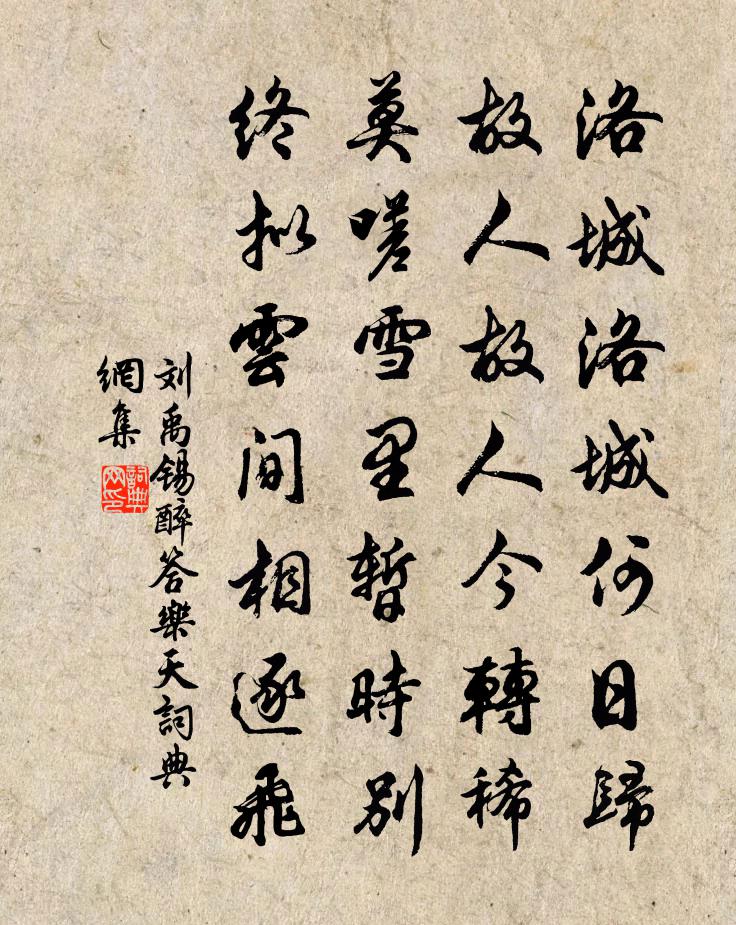 洛城洛城何日歸
故人故人今轉稀
莫嗟雪里暫時別
終拟雲間相逐飛
刘禹锡醉答樂天詞典
網集
詞典
网印